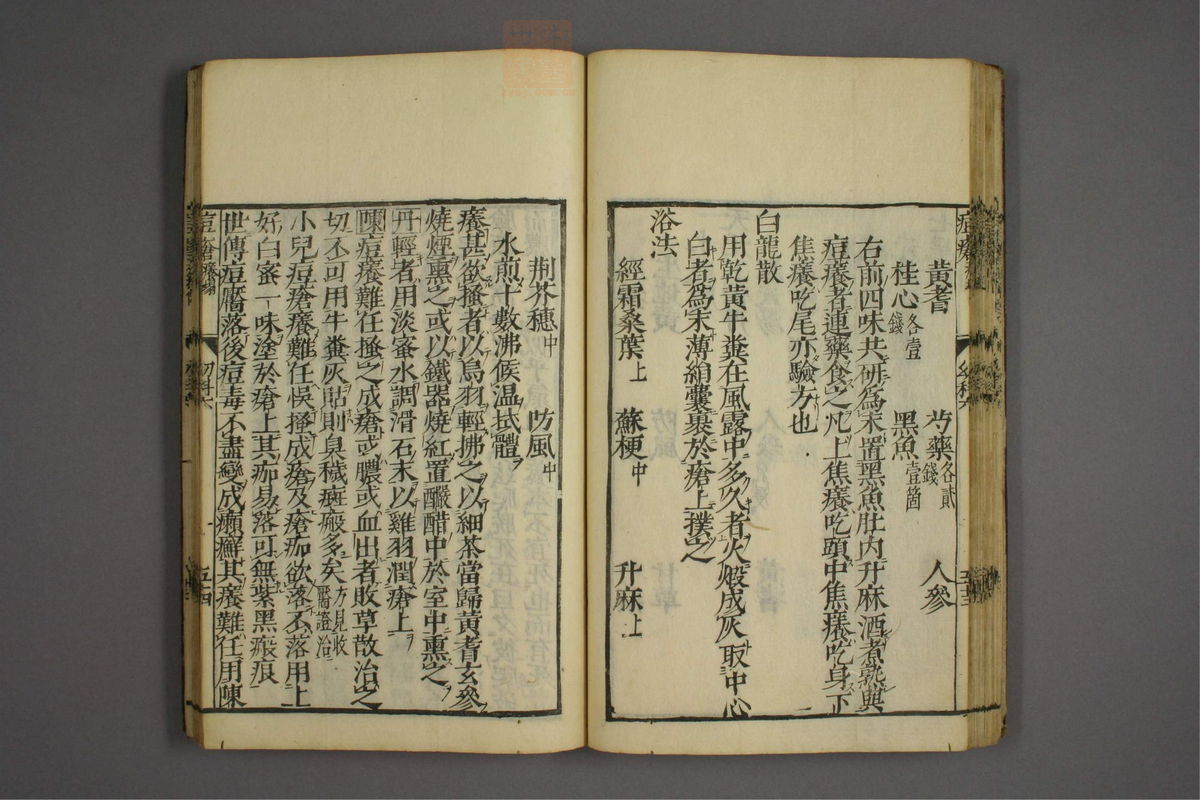 黃耆　芍藥各貳錢　人參
桂心各壹錢　黑魚壹箇
右前四味共研爲末置黑魚肚內升麻酒煮熟與
痘癢者連藥食之凡上焦癢吃頭中焦癢吃身下
焦癢吃尾亦驗方也
白龍散
用乾黃牛糞在風露中多久者火煅成灰取中心
白者爲末薄絹囊裹於瘡上撲之
浴法
經霜桑葉上　蘇梗中　升麻上
荆芥穗中　防風中
水煎十數沸候温拭體
癢甚欲搔者以鳥羽輕拂之以細茶當歸黃耆玄參
燒煙熏之或以鐵器燒紅置釅醋中於室中熏之
丹輕者用淡蜜水調滑石末以雞羽潤瘡上
陳痘癢難任搔之成瘡或膿或血出者敗草散治之
切不可用牛糞灰貼則臭穢斑瘢多矣方見收靨證治
小兒痘瘡癢難任悞搔成瘡及瘡痂欲落不落用上
好白蜜一味塗於瘡上其痂易落可無紫黑瘢痕
世傳痘靨落後痘毒不盡變成癩癬其癢難任用陳